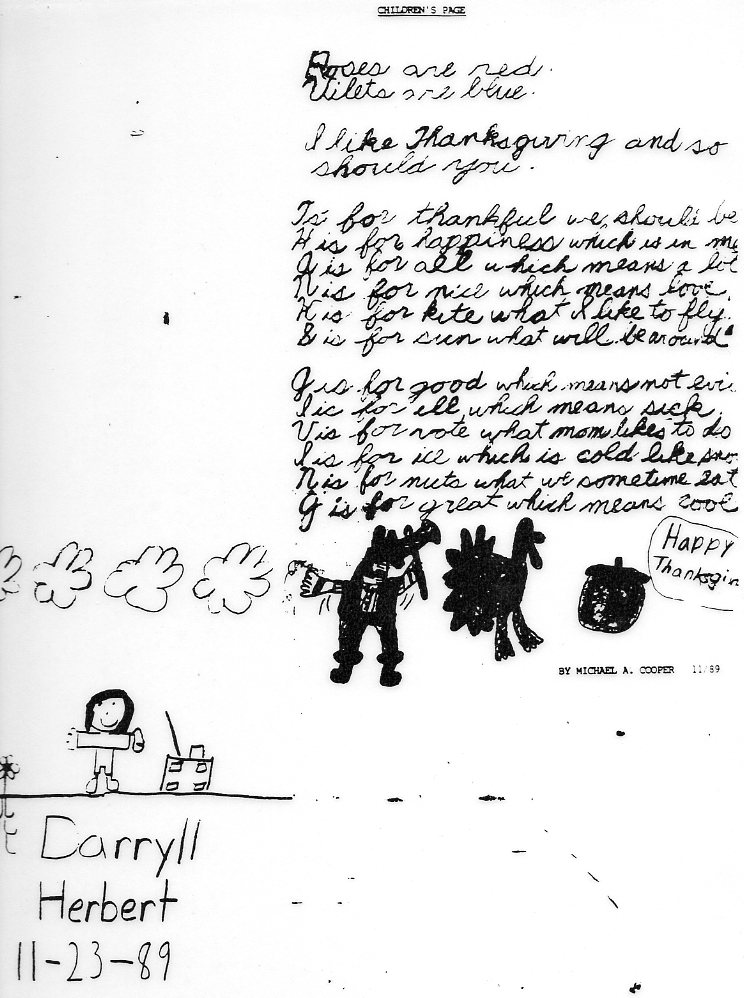 CHILDREN'S PAGE
Roses are red.
Vilets are blue.
I like Thanksgiving and so
should you.
T is for thankful we should be
H is for happiness which is in me
A is for all which means a lot
N is for nice which means love.
K is for kite what I like to fly.
S is for sun what will be around
G is for good which means not evi
I is for ill which means sick.
V is for vote what mom likes to do
I is for ice which is cold like sno
N is for nuts what we sometime eat
G is for great which means cool
Happy
Thanksgivin
BY MICHAEL A. COOPER 11/89
Darryll
Herbert
11-23-89